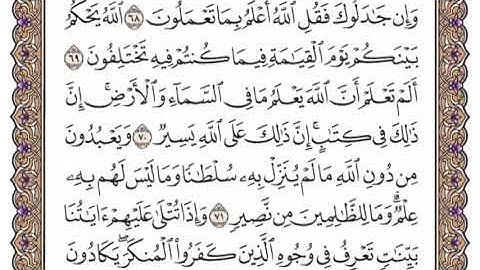 وَإِن جَٰدَلُوكَ فَقُلِ ٱللَّهُ أَعْلَمُ بِمَا تَعْمَلُونَ ٦٨ ٱللَّهُ يَحْكُمُ
بَيْنَكُمْ يَوْمَ ٱلْقِيَٰمَةِ فِيمَا كُنتُمْ فِيهِ تَخْتَلِفُونَ ٦٩
أَلَمْ تَعْلَمْ أَنَّ ٱللَّهَ يَعْلَمُ مَا فِي ٱلسَّمَآءِ وَٱلْأَرْضِۚ إِنَّ
ذَٰلِكَ فِي كِتَٰبٍۚ إِنَّ ذَٰلِكَ عَلَى ٱللَّهِ يَسِيرٌ ٧٠ وَيَعْبُدُونَ
مِن دُونِ ٱللَّهِ مَا لَمْ يُنَزِّلْ بِهِۦ سُلْطَٰنًا وَمَا لَيْسَ لَهُم بِهِۦ
عِلْمٌۗ وَمَا لِلظَّٰلِمِينَ مِن نَّصِيرٍ ٧١ وَإِذَا تُتْلَىٰ عَلَيْهِمْ ءَايَٰتُنَا
بَيِّنَٰتٍ تَعْرِفُ فِي وُجُوهِ ٱلَّذِينَ كَفَرُوا۟ ٱلْمُنكَرَۖ يَكَادُونَ